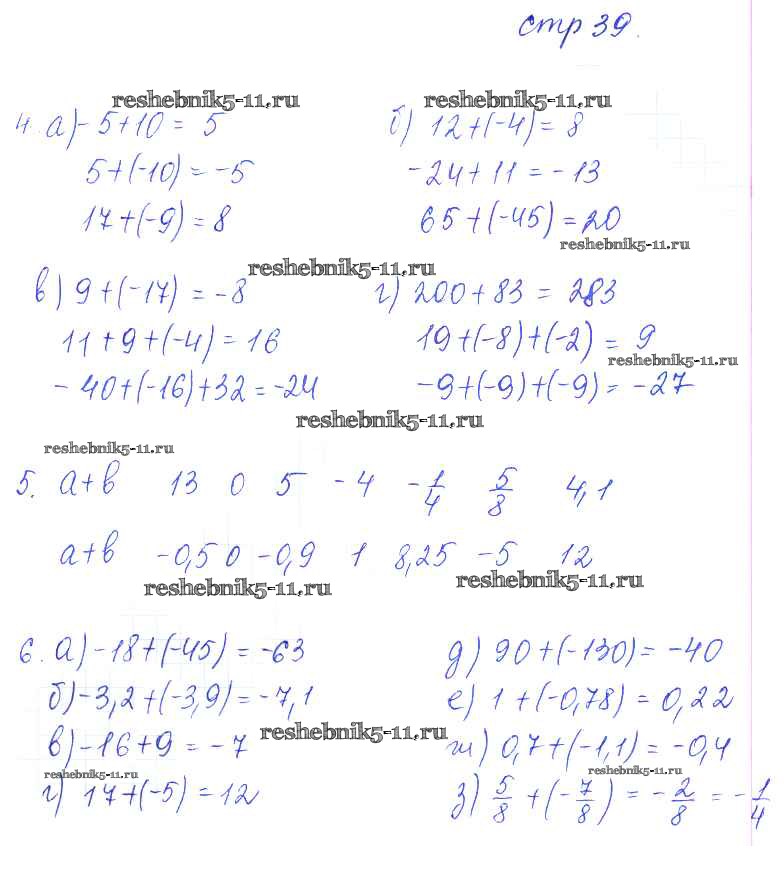 стр 39.
reshebnik5-11.ru reshebnik5-11.ru
4. а) -5+10 = 5 б) 12+(-4) = 8
5+(-10) = -5 -24+11 = -13
17+(-9) = 8 65+(-45) = 20
reshebnik5-11.ru
reshebnik5-11.ru
в) 9+(-17) = -8 г) 200+83 = 283
11+9+(-4) = 16 19+(-8)+(-2) = 9
reshebnik5-11.ru
-40+(-16)+32 = -24 -9+(-9)+(-9) = -27
reshebnik5-11.ru
reshebnik5-11.ru
5. а+в 13 0 5 -4 -1/4 5/8 4,1
а+в -0,5 0 -0,9 1 8,25 -5 12
reshebnik5-11.ru reshebnik5-11.ru
6. а) -18+(-45) = -63 д) 90+(-130) = -40
б) -3,2+(-3,9) = -7,1 е) 1+(-0,78) = 0,22
reshebnik5-11.ru
в) -16+9 = -7 ж) 0,7+(-1,1) = -0,4
reshebnik5-11.ru reshebnik5-11.ru
г) 17+(-5) = 12 з) 5/8 + (-7/8) = -2/8 = -1/4